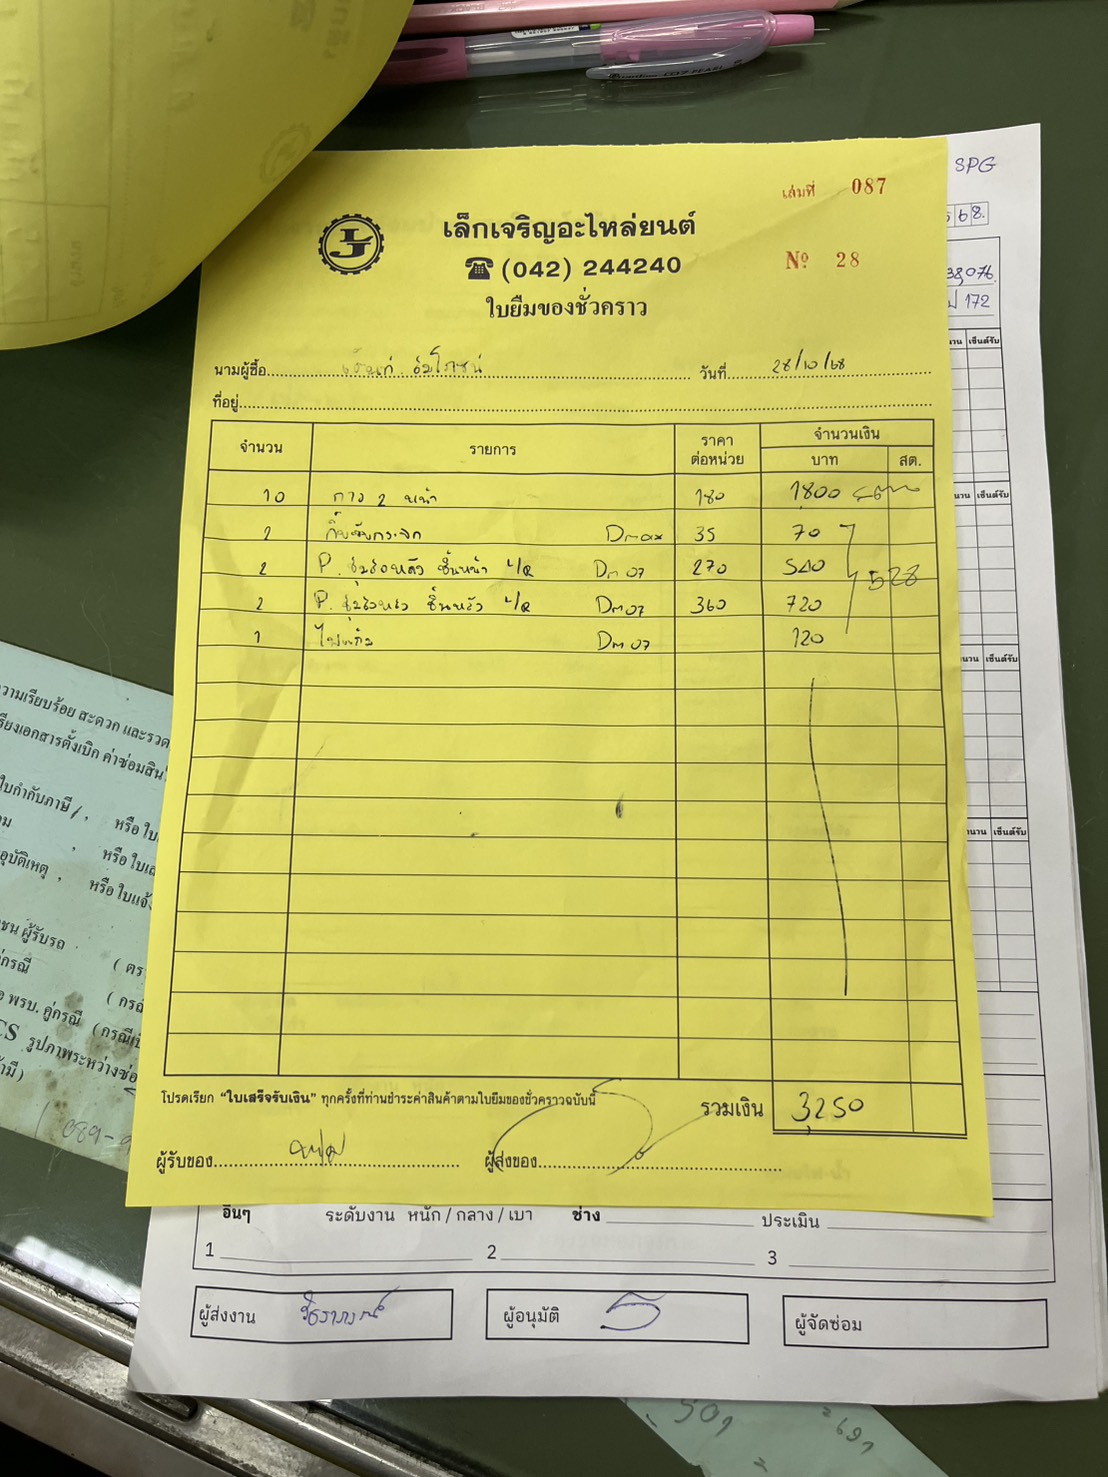 SPG
เล่มที่ 087
เล็กเจริญอะไหล่ยนต์
(042) 244240
Nº 28
ใบยืมของชั่วคราว
568.
38,076
172
นามผู้ซื้อ
วันที่ 28/10/68
ที่อยู่
จำนวน รายการ ราคาต่อหน่วย จำนวนเงิน บาท สต.
10 กาว 2 หน้า 180 1800
2 กิ๊บจับกระจก Dmax 35 70
2 P. ซุ้มล้อหลัง ชิ้นหน้า L/R Dm 07 270 540
528
2 P. ซุ้มล้อหลัง ชิ้นหลัง L/R Dm 07 360 720
1 Dm 07 120
โปรดเรียก "ใบเสร็จรับเงิน" ทุกครั้งที่ท่านชำระค่าสินค้าตามใบยืมของชั่วคราวฉบับนี้
รวมเงิน 3,250
ผู้รับของ
ผู้ส่งของ
อื่นๆ ระดับงาน หนัก / กลาง / เบา ช่าง ประเมิน
1 2 3
ผู้ส่งงาน
ผู้อนุมัติ
ผู้จัดซ่อม
วามเรียบร้อย สะดวก และรวด
รียงเอกสารตั้งเบิก ค่าซ่อมสิน
ใบกำกับภาษี / , หรือ ใบ
อุบัติเหตุ , หรือ ใบแจ้ง
ชน ผู้รับรถ
คู่กรณี
พรบ. คู่กรณี
CS รูปภาพระหว่างซ่อ
089-9